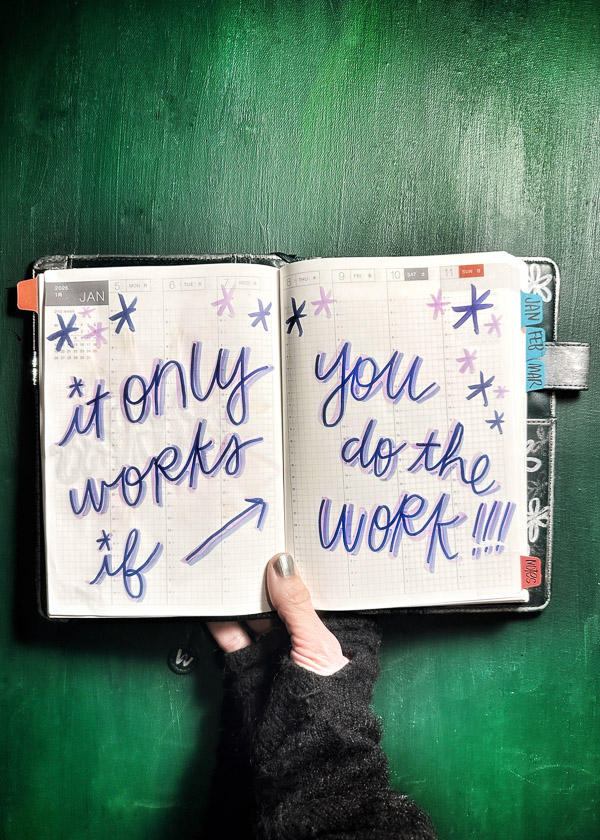 2026
1月 JAN
5 MON 月
6 TUE 火
7 WED 水
8 THU 木
9 FRI 金
10 SAT 土
11 SUN 日
it only
works
if
you
do the
WORK!!!!
JAN
FEB
MAR
NOTES
W